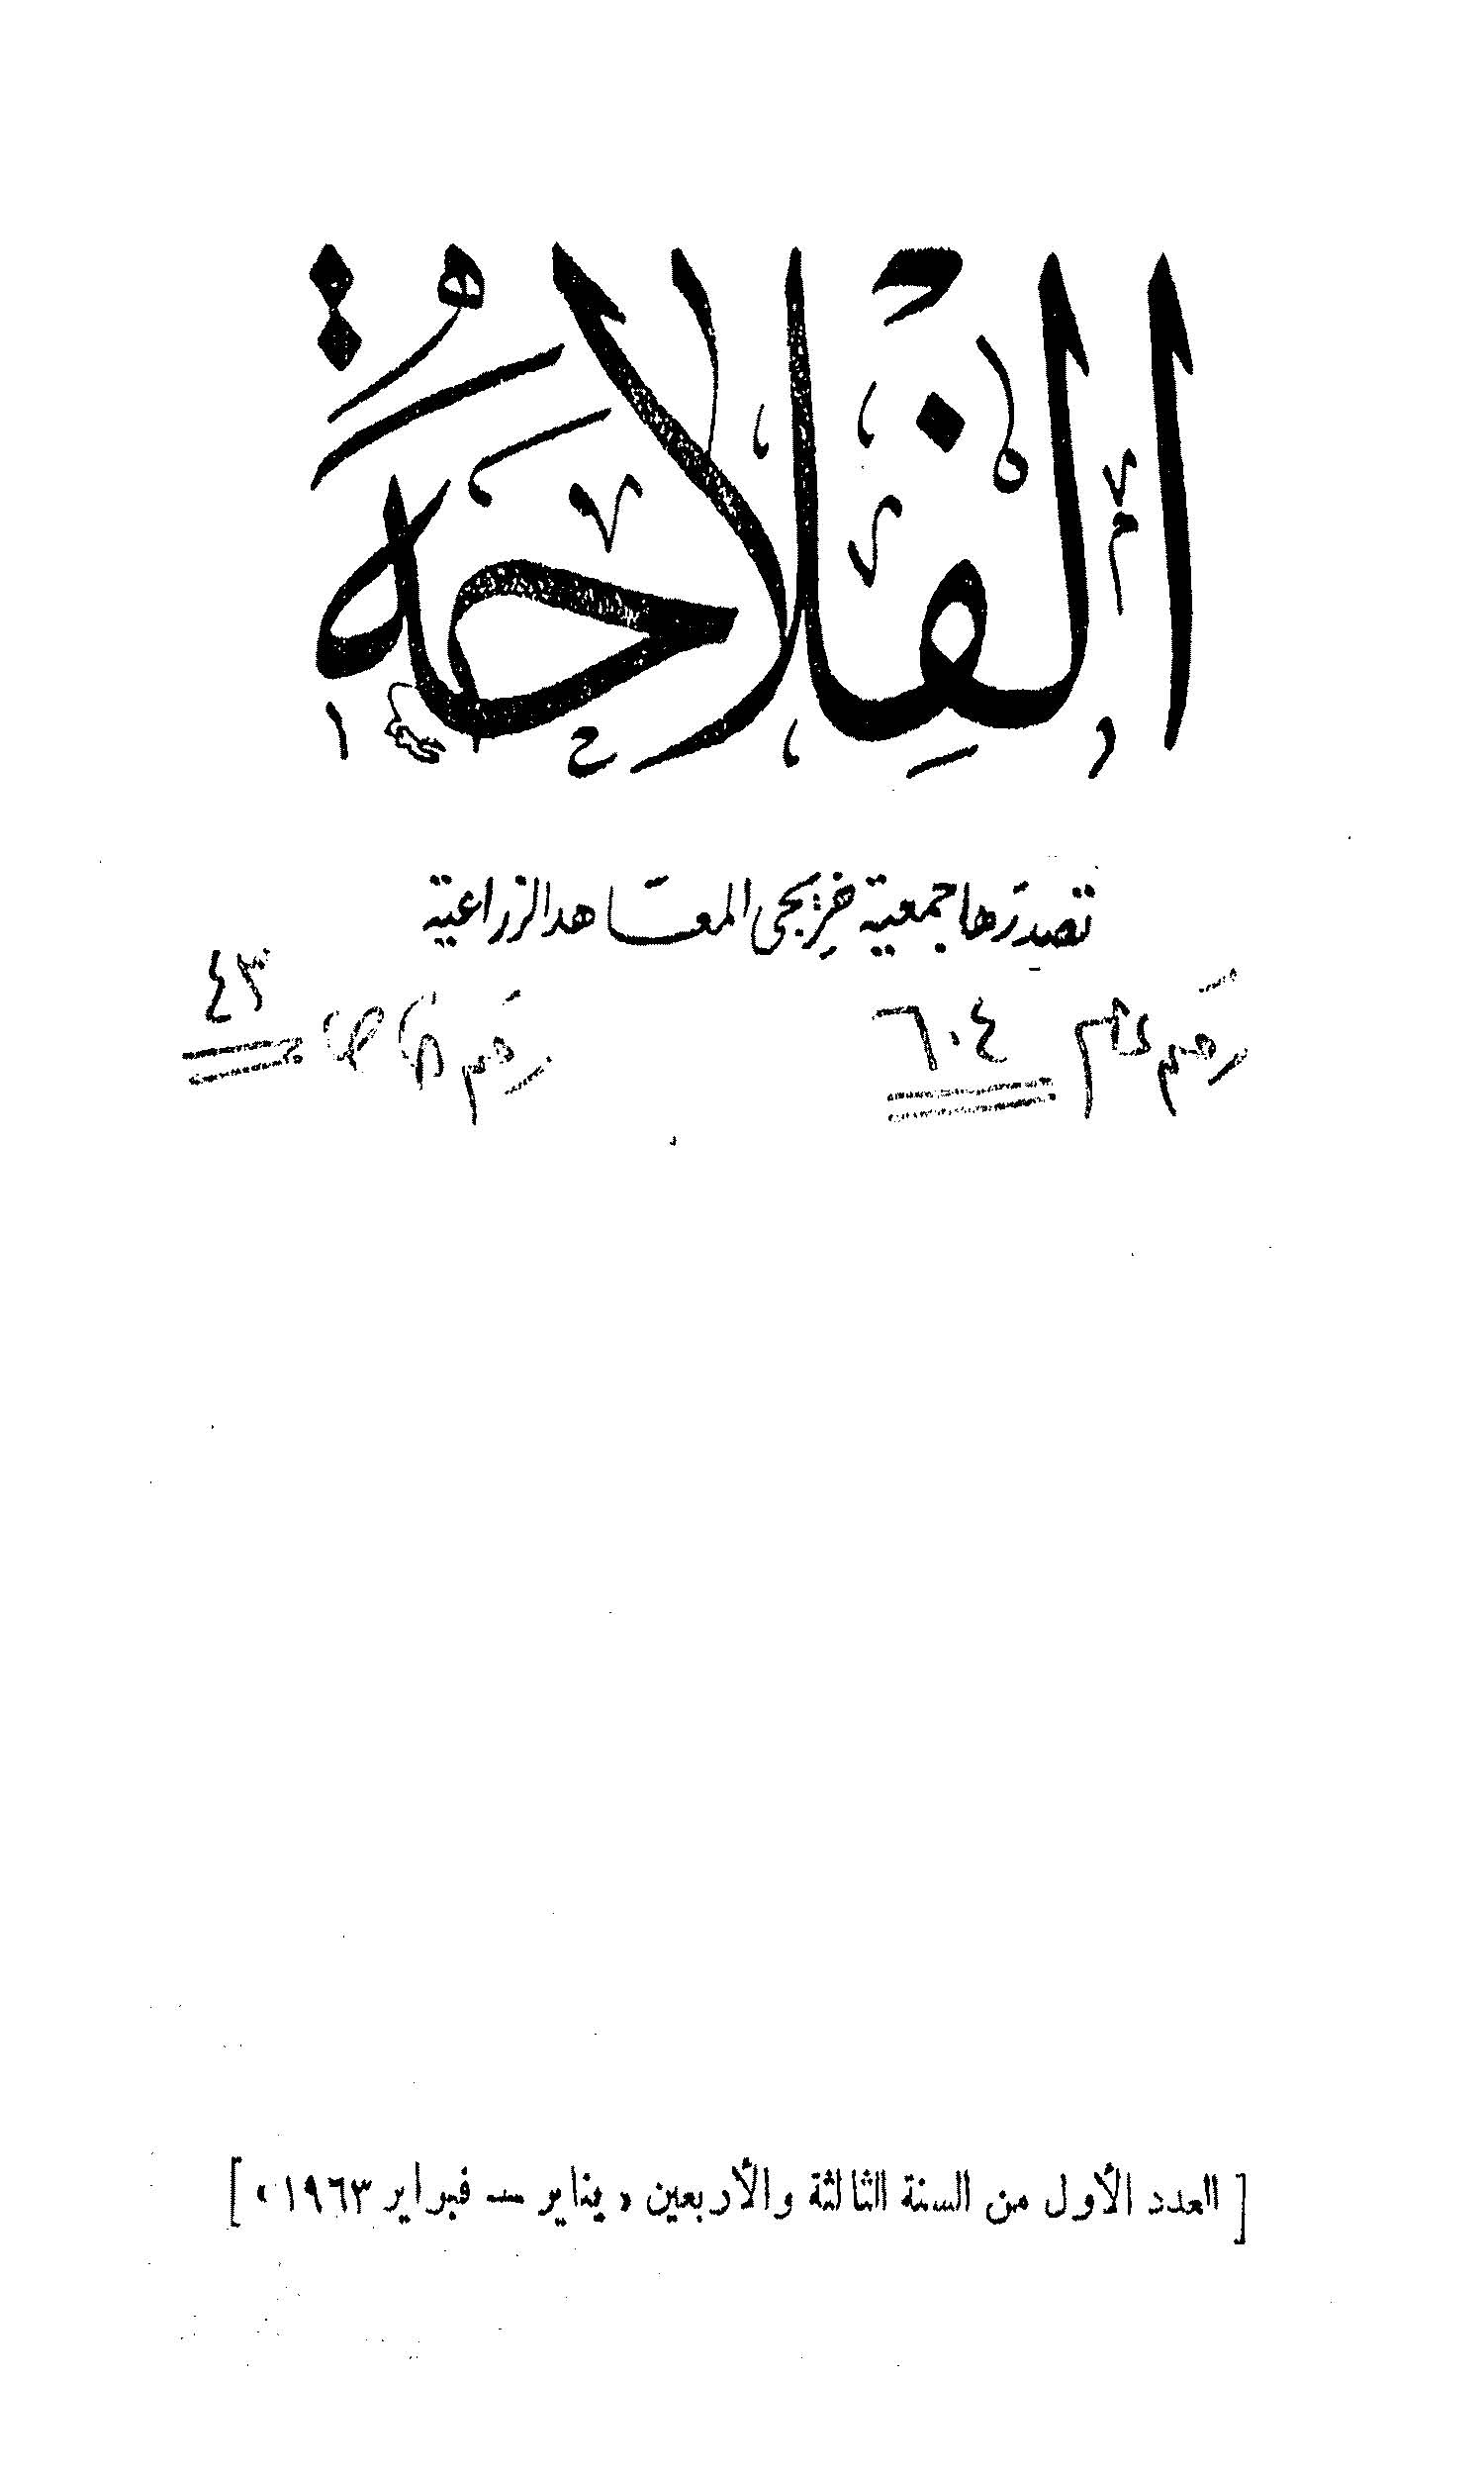 الفلاحة
تصدرها جمعية خريجى المعاهد الزراعية
رقم عام ٦٠٤
رقم خاص ٤٣
[ العدد الأول من السنة الثالثة والأربعين « يناير — فبراير ١٩٦٣ » ]